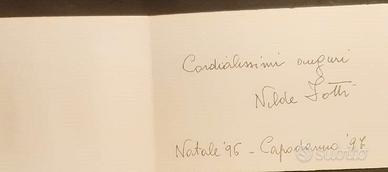 Cordialissimi auguri
Nilde Iotti
Natale '96 - Capodanno '97
subito